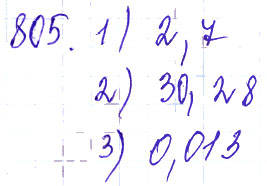 805. 1) 2,7
2) 30,28
3) 0,013